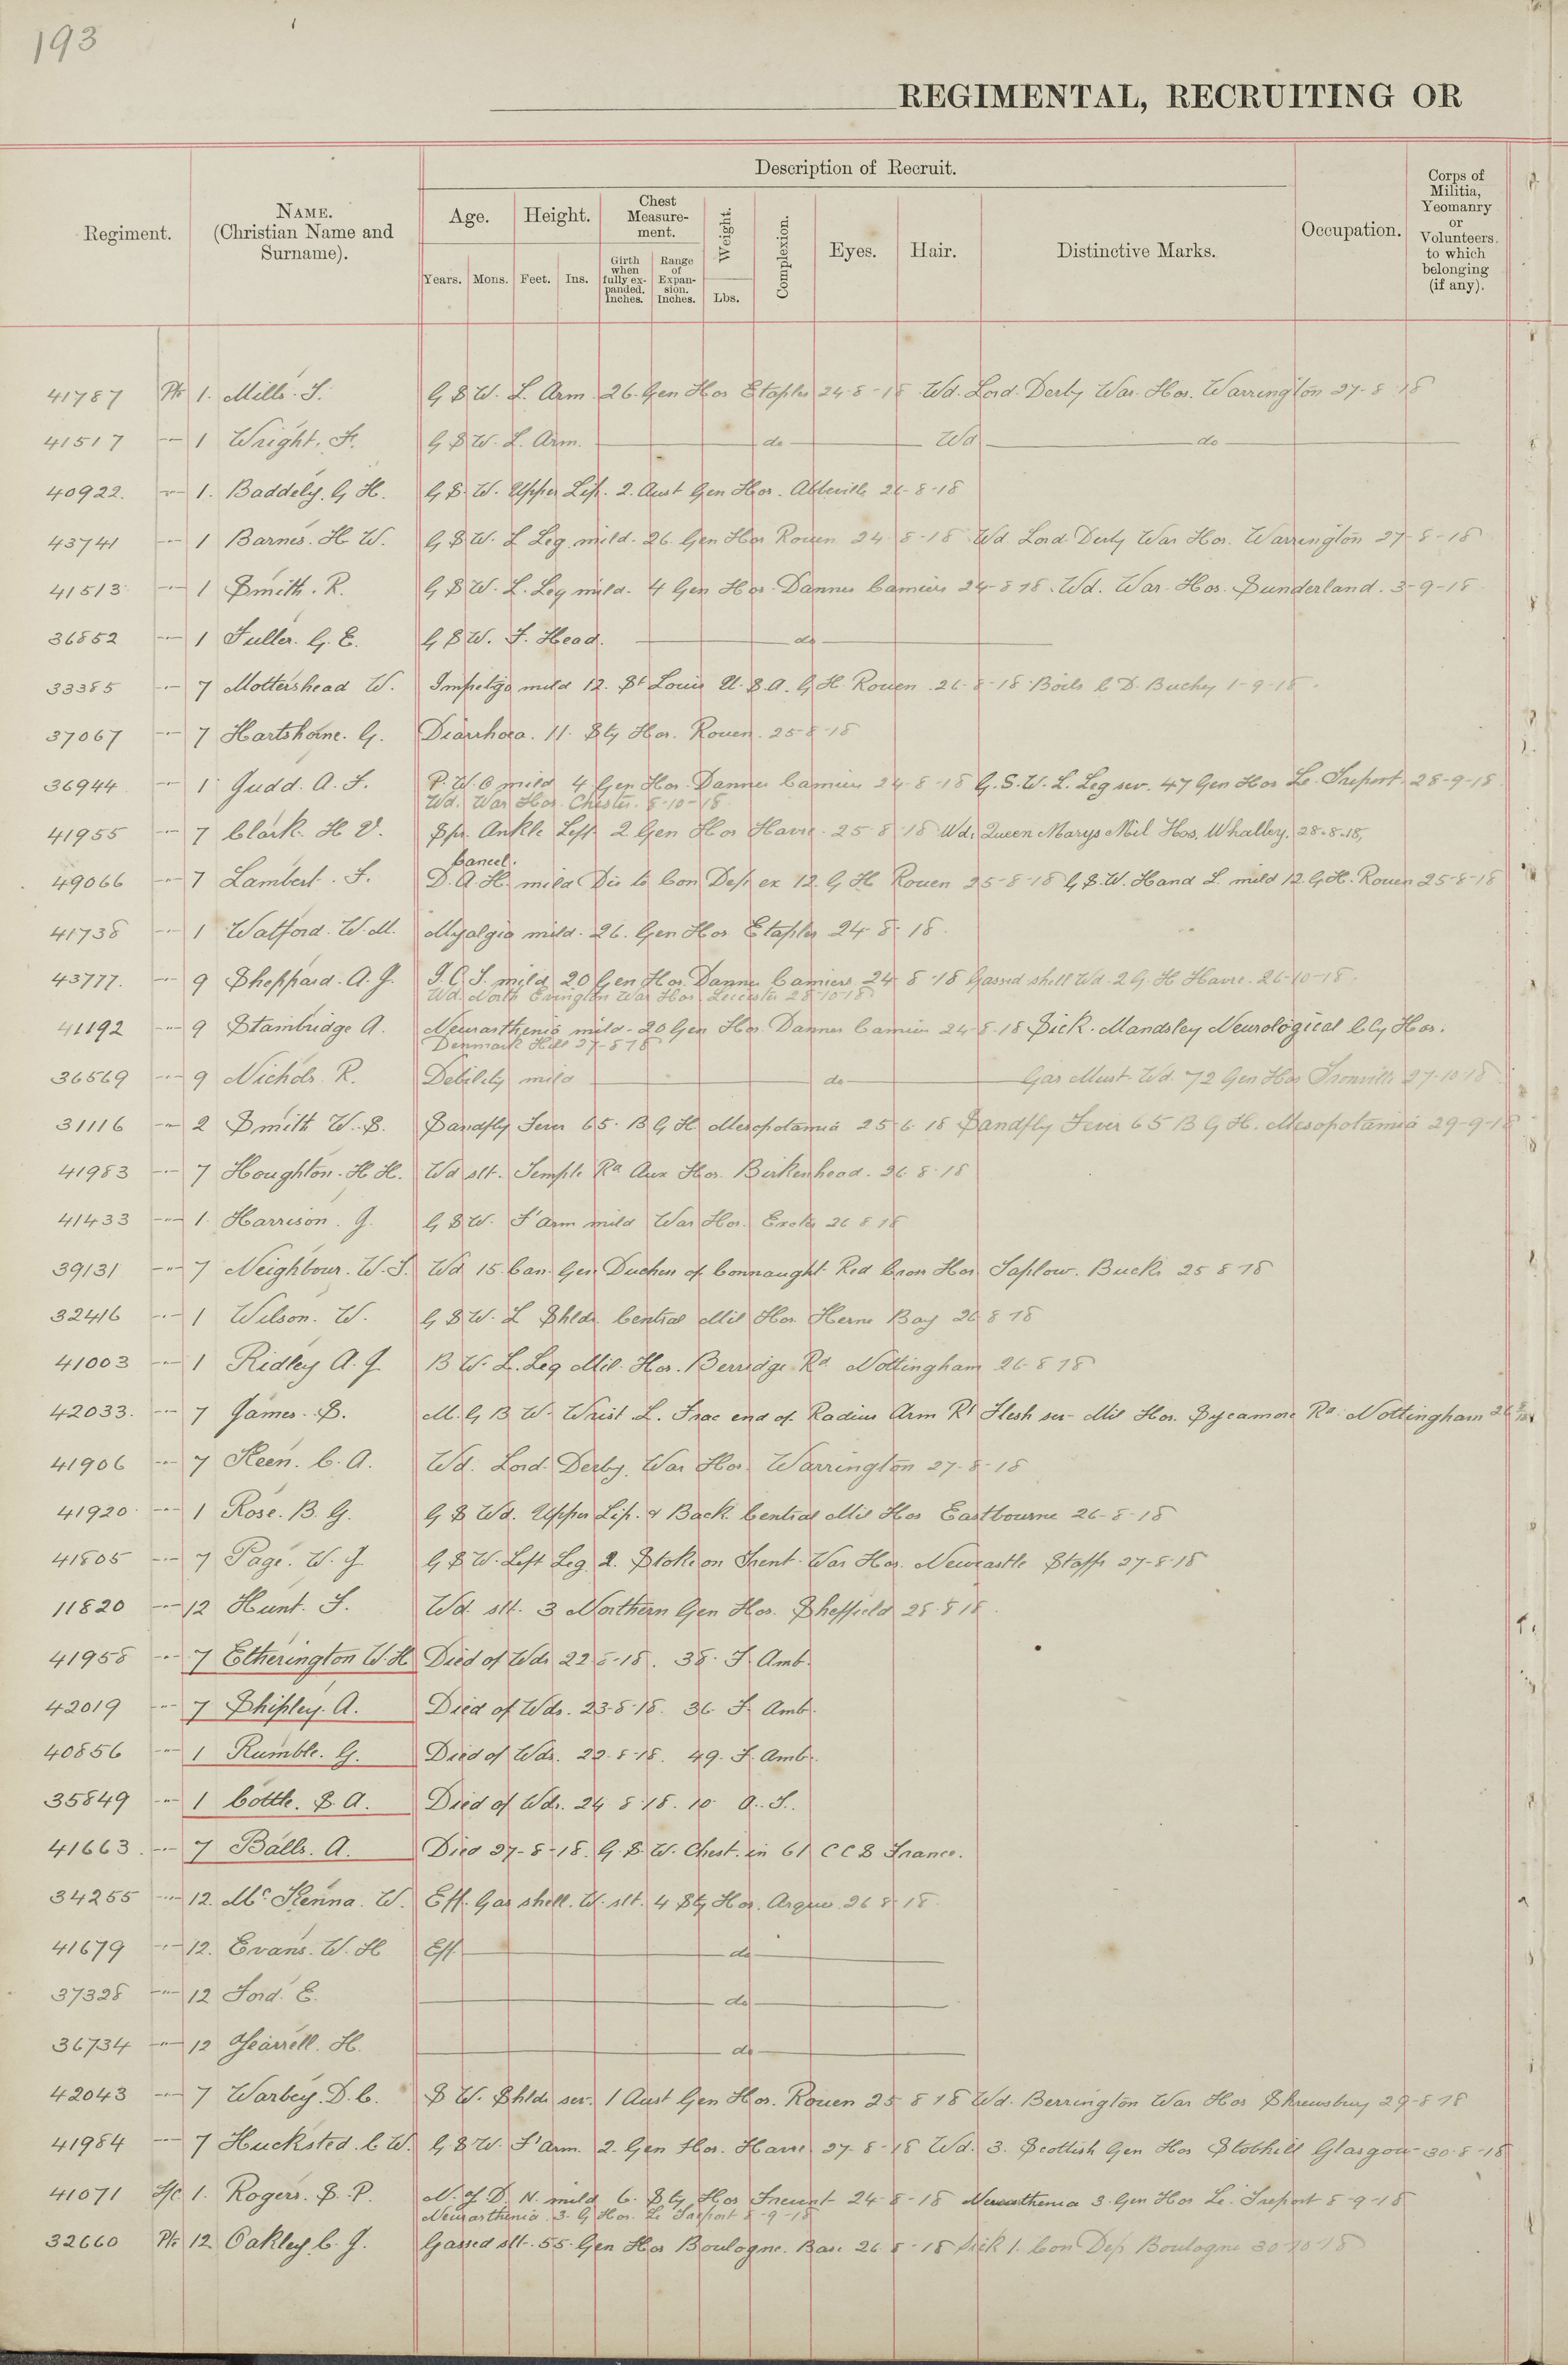 193
REGIMENTAL, RECRUITING OR
Description of Recruit.
Regiment.
NAME.
(Christian Name and
Surname).
Age.
Height.
Chest
Measure-
ment.
Weight.
Complexion.
Eyes.
Hair.
Distinctive Marks.
Occupation.
Corps of
Militia,
Yeomanry
or
Volunteers
to which
belonging
(if any).
Years.
Mons.
Feet.
Ins.
Girth
when
fully ex-
panded.
Inches.
Range
of
Expan-
sion.
Inches.
Lbs.
41787 Pte 1. Mills. S. G S W. L. Arm 26. Gen Hos Etaples 24-8-18 Wd. Lord Derby War Hos. Warrington 27-8-18
41517 1 Wright. F. G S W. L. Arm. do Wd do
40922. 1. Baddely. G H. G S. W. Upper Lip. 2. Aust Gen Hos. Abbeville 26-8-18
43741 1 Barnes. H W. G S W. L Leg mild. 26 Gen Hos Rouen 24-8-18 Wd Lord Derby War Hos. Warrington 27-8-18
41513 1 Smith. R. G S W. L. Leg mild. 4 Gen Hos Dannes Camiers 24-8-18. Wd. War Hos. Sunderland. 3-9-18
36852 1 Fuller. G. E. G S W. F. Head. do
33385 7 Mottershead W. Impetigo mild 12. St Louis U.S.A. G H Rouen 26-8-18 Boils C D. Buchy 1-9-18.
37067 7 Hartshorne. G. Diarrhoea. 11. Sty Hos. Rouen. 25-8-18
36944 1 Judd. A. F. P. W. O mild 4 Gen Hos Dannes Camiers 24-8-18 G. S. W. L. Leg sev. 47 Gen Hos Le Treport 28-9-18
Wd. War Hos. Chester. 8-10-18
41955 7 Clark. H V. Spr. Ankle Left 2 Gen Hos Havre. 25-8-18 Wd. Queen Marys Mil Hos, Whalley. 28.8.18,
Cancel.
49066 7 Lambert. F. D. A H. mild Dis to Con Dep ex 12. G H Rouen 25-8-18 G. S. W. Hand L mild 12. G. H. Rouen 25-8-18
41738 1 Watford. W. M. Myalgia mild. 26. Gen Hos Etaples 24-8-18.
43777. 9 Sheppard. A. J. I. C. T. mild 20 Gen Hos Dannes Camiers 24-8-18 Gassed shell Wd. 2 G. H Havre. 26-10-18.
Wd. North Evington War Hos Leicester 28-10-18
41192 9 Stambridge A. Neurasthenia mild. 20 Gen Hos. Dannes Camiers 24-8-18 Sick. Mandsley Neurological Cly Hos.
Denmark Hill 27-8-18
36569 9 Nichols. R. Debility mild do Gas Must. Wd. 72 Gen Hos Trouville 27-10-18
31116 2 Smith W. S. Sandfly Fever 65. B G H Mesopotamia 25-6-18 Sandfly Fever 65 B G H. Mesopotamia 29-9-18
41983 7 Houghton. H H. Wd slt. Temple Rd Aux Hos. Birkenhead. 26-8-18
41433 1. Harrison. J. G S W. F'arm mild War Hos. Exeter 26 8 18
39131 7 Neighbour. W. S. Wd 15. Can. Gen Duchess of Connaught Red Cross Hos Taplow. Bucks 25 8 18
32416 1 Wilson. W. G S W. L Shldr Central Mil Hos. Herne Bay 26 8 18
41003 1 Ridley A. J B W. L. Leg Mil. Hos. Berridge Rd Nottingham 26-8-18
42033. 7 James. S. M. G B W. Wrist L. Frac end of Radius Arm Rt Flesh sev Mil Hos. Sycamore Rd Nottingham 26 8 18
41906 7 Keen. C. A. Wd. Lord Derby. War Hos. Warrington 27-8-18
41920 1 Rose. B. G. G S Wd. Upper Lip. & Back Central Mil Hos Eastbourne 26-8-18
41805 7 Page. W. J. G S W. Left Leg 2. Stoke on Trent War Hos. Newcastle Staffs 27-8-18
11820 12 Hunt. F. Wd. slt. 3 Northern Gen Hos. Sheffield 25 8 18
41958 7 Etherington W. H Died of Wds 22-8-18. 38. F. Amb.
42019 7 Shipley. A. Died of Wds. 23-8-18. 36 F. Amb.
40856 1 Rumble. G. Died of Wds. 22-8-18. 49. F. Amb.
35849 1 Cottle. S. A. Died of Wds. 24 8 18. 10 A. F.
41663. 7 Balls. A. Died 27-8-18. G. S. W. Chest. in 61 C C S France.
34255 12. Mc Kenna. W. Eff. Gas shell. W. slt. 4 Sty Hos. Arques 26 8-18.
41679 12. Evans. W. H Eff do
37328 12 Ford. E. do
36734 12 H. do
42043 7 Warbey. D. C. S W. Shldr sev. 1 Aust Gen Hos. Rouen 25 8 18 Wd. Berrington War Hos Shrewsbury 29-8-18
41984 7 Hucksted. C W. G S W. F'Arm. 2. Gen Hos. Havre 27-8-18 Wd. 3. Scottish Gen Hos Stobhill Glasgow 30-8-18
41071 L/C 1. Rogers. S. P. N. Y. D. N. mild 6. Sty Hos Frevent 24-8-18 Neurasthenia 3. Gen Hos Le Treport 8-9-18
Neurasthenia. 3. G Hos. Le Treport 8-9-18
32660 Pte 12 Oakley C. J. Gassed slt. 55. Gen Hos Boulogne. Base 26-8-18 Sick 1. Con Dep Boulogne 30-10-18